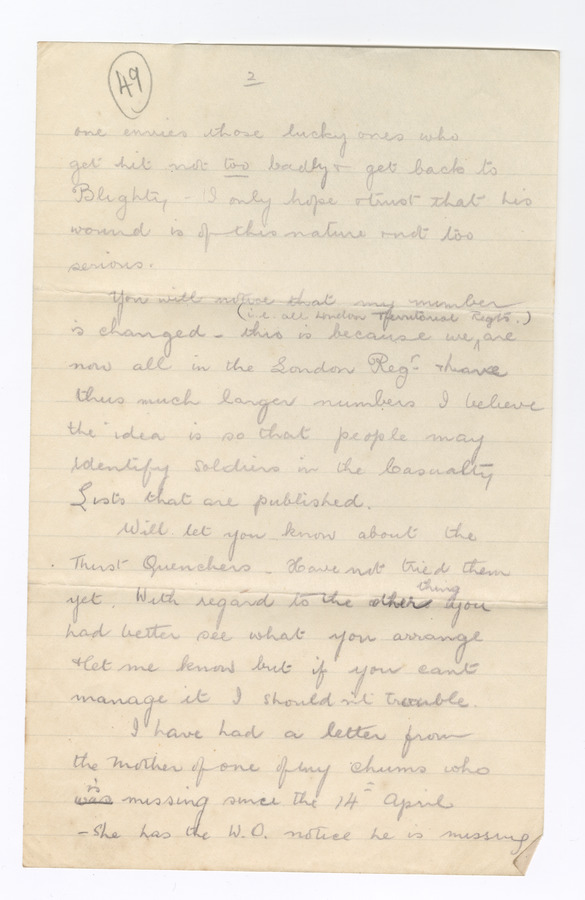 49
2
one envies those lucky ones who
get hit not too badly & get back to
Blighty, - I only hope & trust that his
wound is of this nature & not too
serious.
You will notice that my number
(i.e. all London Territorial Regts.)
is changed - this is because we are
now all in the London Regt & have
thus much larger numbers I believe
the idea is so that people may
identify soldiers in the Casualty
Lists that are published.
Will let you know about the
Thirst Quenchers - Have not tried them
yet. With regard to the other thing you
had better see what you arrange
& let me know but if you cant
manage it I shouldn't trouble.
I have had a letter from
the mother of one of my chums who
was is missing since the 14th April
- She has the W.O. notice he is missing